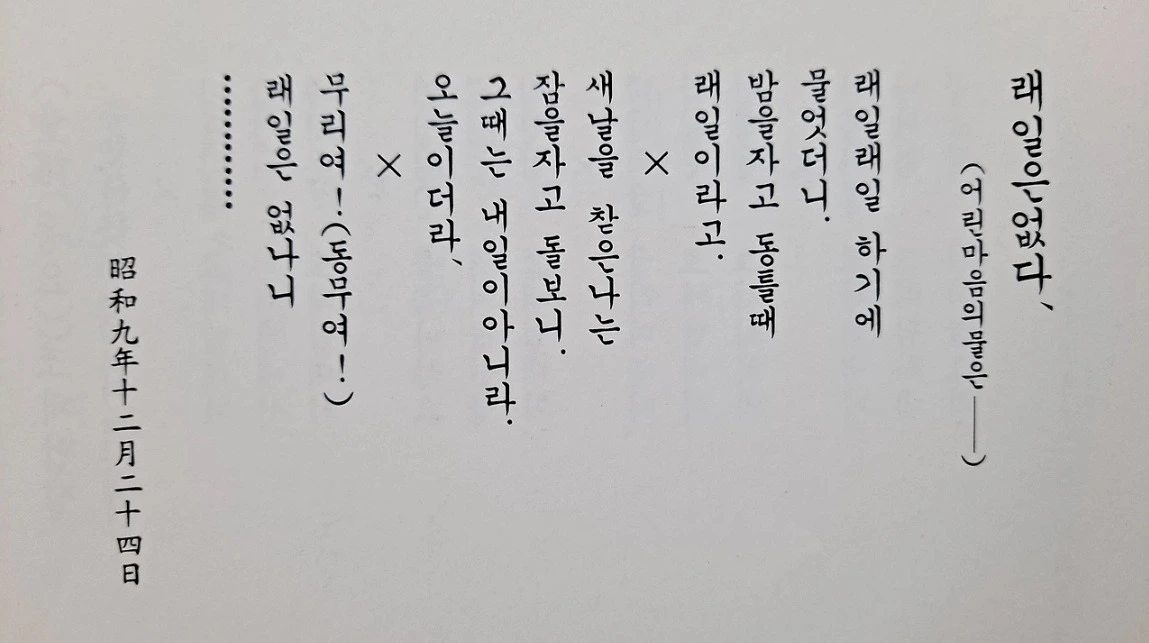 래일은없다、
(어린마음의물은──)
래일래일 하기에
물엇더니.
밤을자고 동틀때
래일이라고.
×
새날을 찯은나는
잠을자고 돌보니.
그때는 내일이아니라.
오늘이더라、
×
무리여!(동무여!)
래일은 없나니
············
昭和九年十二月二十四日